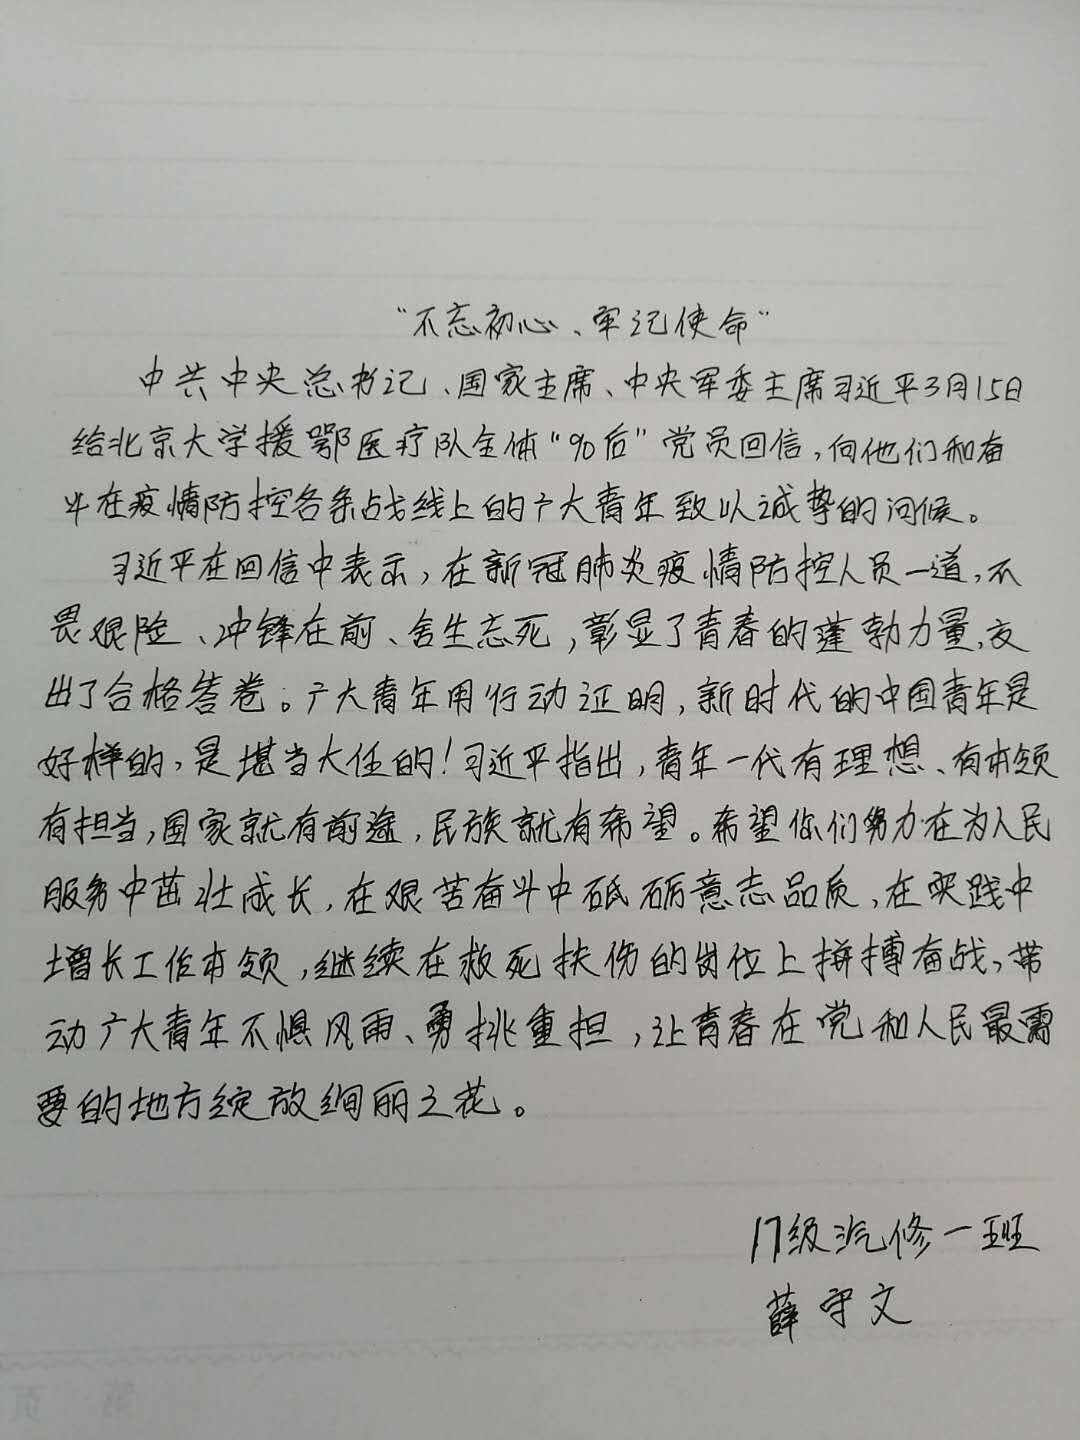 “不忘初心、牢记使命”
中共中央总书记、国家主席、中央军委主席习近平3月15日
给北京大学援鄂医疗队全体“90后”党员回信,向他们和奋
斗在疫情防控各条战线上的广大青年致以诚挚的问候。
习近平在回信中表示,在新冠肺炎疫情防控人员一道,不
畏艰险、冲锋在前、舍生忘死,彰显了青春的蓬勃力量,交
出了合格答卷。广大青年用行动证明,新时代的中国青年是
好样的,是堪当大任的!习近平指出,青年一代有理想、有本领
有担当,国家就有前途,民族就有希望。希望你们努力在为人民
服务中茁壮成长,在艰苦奋斗中砥砺意志品质,在实践中
增长工作本领,继续在救死扶伤的岗位上拼搏奋战,带
动广大青年不惧风雨、勇挑重担,让青春在党和人民最需
要的地方绽放绚丽之花。
17级汽修一班
薛守文